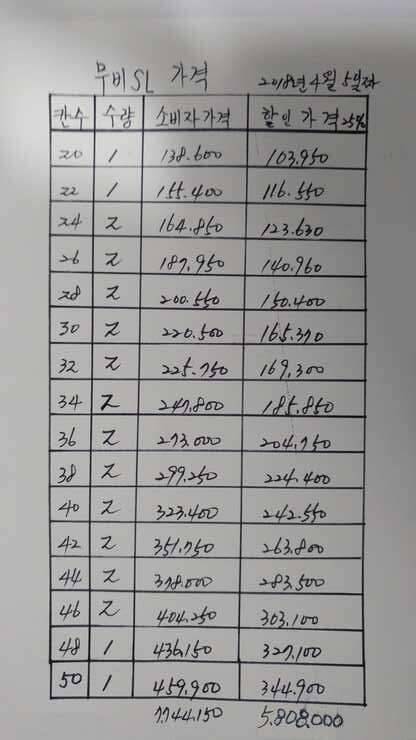 무비SL 가격 2018년 4월 5일자
칸수 수량 소비자가격 할인가격25%
20 1 138.600 103.950
22 1 155.400 116.550
24 2 164.850 123.630
26 2 187.950 140.960
28 2 200.550 150.400
30 2 220.500 165.370
32 2 225.750 169.300
34 2 247.800 185.850
36 2 273.000 204.750
38 2 299.250 224.400
40 2 323.400 242.550
42 2 351.750 263.800
44 2 378.000 283.500
46 2 404.250 303.100
48 1 436.150 327.100
50 1 459.900 344.900
7.744.150 5.808.000